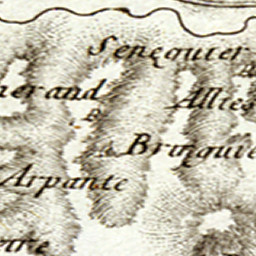 Senequier
erand
Allies
Bringuie
Arpante